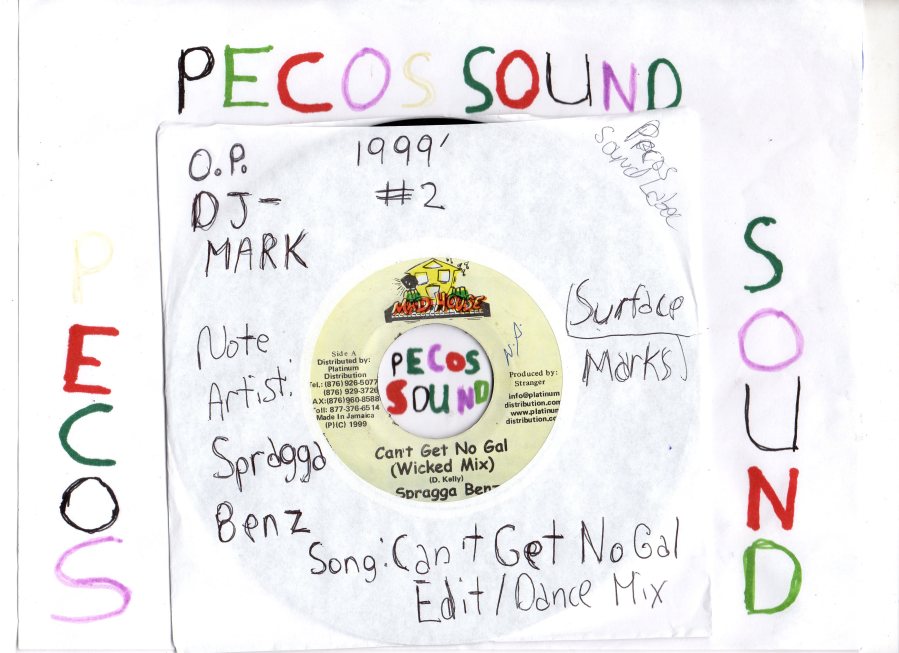 PECOS SOUND
O.P.
DJ-
MARK
1999'
#2
Pecos
Sound Label
PECOS
SOUND
Note
Artist:
Spragga
Benz
(Surface
Marks)
MAD HOUSE
Side A
Distributed by:
Platinum
Distribution
Tel.: (876) 926-5077
(876) 929-3726
FAX:(876)960-8588
Toll: 877-376-6514
Made In Jamaica
(P)(C) 1999
PECOS
SOUND
N.P
Produced by:
Stranger
info@platinum
distribution.com
www.platinum
distribution.co
Can't Get No Gal
(Wicked Mix)
(D. Kelly)
Spragga Benz
Song: Can't Get No Gal
Edit/Dance Mix